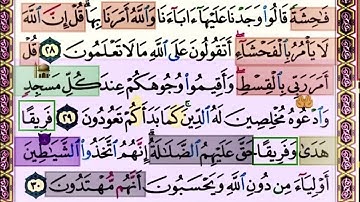 فَٰحِشَةً قَالُوا۟ وَجَدْنَا عَلَيْهَآ ءَابَآءَنَا وَٱللَّهُ أَمَرَنَا بِهَا ۗ قُلْ إِنَّ ٱللَّهَ
لَا يَأْمُرُ بِٱلْفَحْشَآءِ ۖ أَتَقُولُونَ عَلَى ٱللَّهِ مَا لَا تَعْلَمُونَ ٢٨ قُلْ
أَمَرَ رَبِّى بِٱلْقِسْطِ ۖ وَأَقِيمُوا۟ وُجُوهَكُمْ عِندَ كُلِّ مَسْجِدٍ
وَٱدْعُوهُ مُخْلِصِينَ لَهُ ٱلدِّينَ ۚ كَمَا بَدَأَكُمْ تَعُودُونَ ٢٩ فَرِيقًا
هَدَىٰ وَفَرِيقًا حَقَّ عَلَيْهِمُ ٱلضَّلَٰلَةُ ۗ إِنَّهُمُ ٱتَّخَذُوا۟ ٱلشَّيَٰطِينَ
أَوْلِيَآءَ مِن دُونِ ٱللَّهِ وَيَحْسَبُونَ أَنَّهُم مُّهْتَدُونَ ٣٠